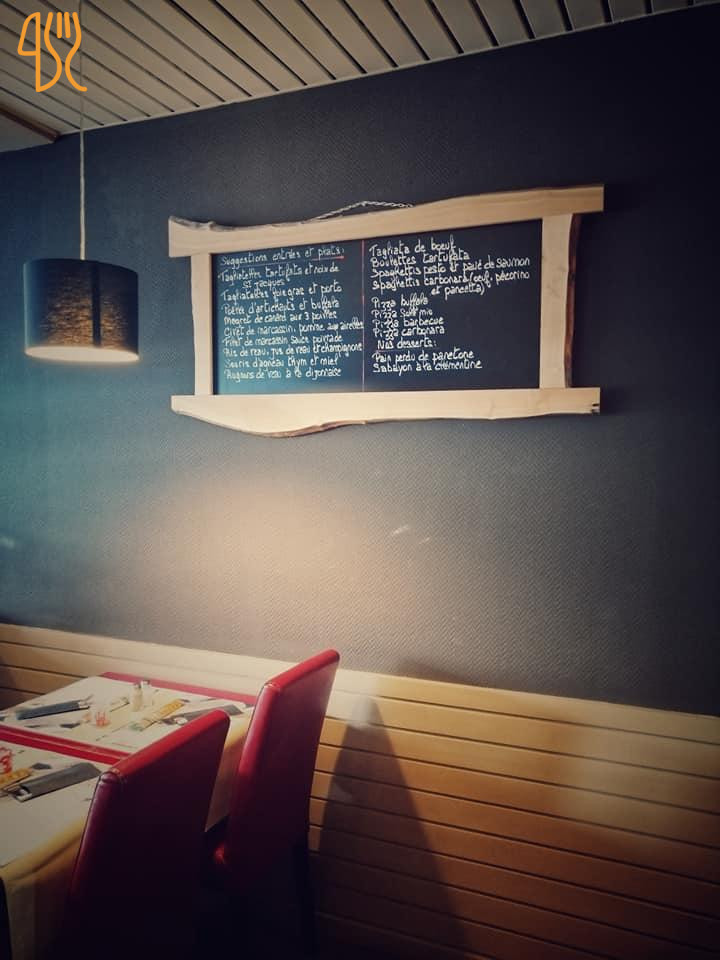 Suggestions entrées et plats:
Tagliatelles tartufata et noix de
St Jacques
Tagliatelles foie gras et porto
Poêlée d'artichauts et buffala
Magret de canard aux 3 poivres
Civet de marcassin, pomme aux airelles
Filet de marcassin sauce poivrade
Ris de veau, jus de veau et champignons
Souris d'agneau thym et miel
Rognons de veau à la dijonnaise
Tagliata de bœuf
Boulettes tartufata
Spaghettis pesto et pavé de saumon
Spaghettis carbonara (œuf, pécorino
et pancetta)
Pizza buffala
Pizza
Pizza barbecue
Pizza carbonara
Nos desserts:
Pain perdu de panetone
Sabayon à la clémentine